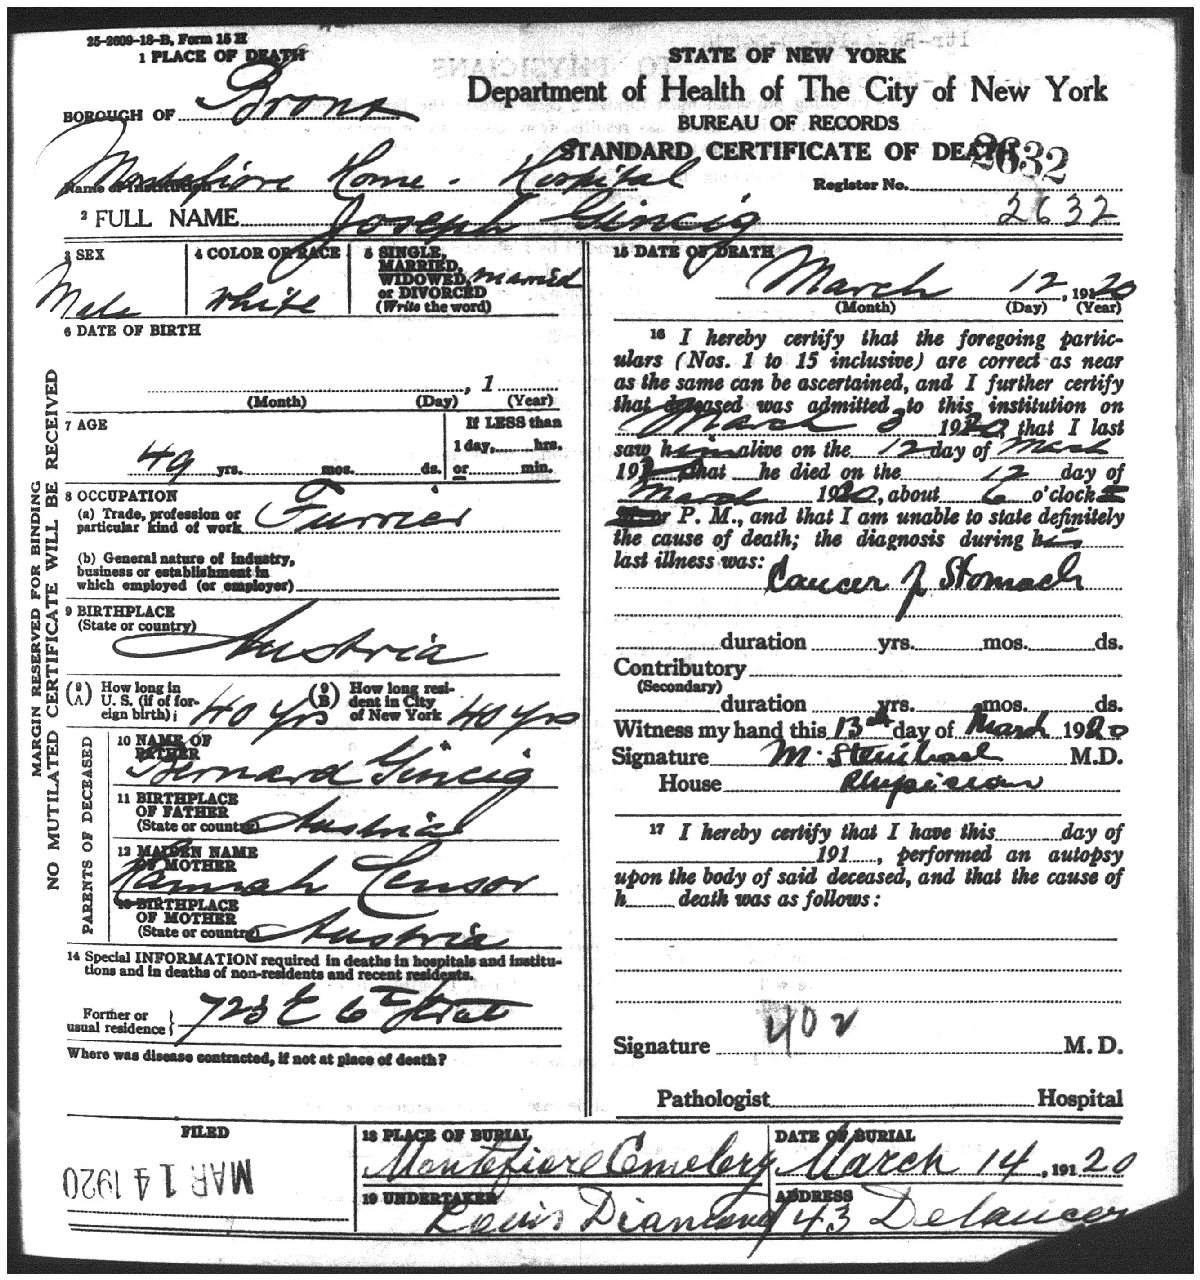 25-2609-18-B, Form 15 H
1 PLACE OF DEATH
STATE OF NEW YORK
Department of Health of The City of New York
BUREAU OF RECORDS
STANDARD CERTIFICATE OF DEATH
BOROUGH OF Bronx
2632
Name of Institution Montefiore Home. Hospital
Register No.
2 FULL NAME Joseph Gincig 2632
3 SEX Male
4 COLOR OR RACE White
5 SINGLE, MARRIED, WIDOWED, or DIVORCED (Write the word) married
6 DATE OF BIRTH
, 1
(Month) (Day) (Year)
7 AGE
If LESS than
1 day, hrs.
49 yrs. mos. ds. or min.
8 OCCUPATION
(a) Trade, profession or
particular kind of work Furrier
(b) General nature of industry,
business or establishment in
which employed (or employer)
9 BIRTHPLACE
(State or country)
Austria
(9 A) How long in U. S. (if of foreign birth) 40 yrs
(9 B) How long resident in City of New York 40 yrs
PARENTS OF DECEASED
10 NAME OF FATHER Bernard Gincig
11 BIRTHPLACE
OF FATHER
(State or country) Austria
12 MAIDEN NAME
OF MOTHER
Hannah Censor
13 BIRTHPLACE
OF MOTHER
(State or country) Austria
14 Special INFORMATION required in deaths in hospitals and institu-
tions and in deaths of non-residents and recent residents.
Former or
usual residence } 723 E 6th Street
Where was disease contracted, if not at place of death?
MARGIN RESERVED FOR BINDING
NO MUTILATED CERTIFICATE WILL BE RECEIVED
15 DATE OF DEATH
March 12, 1920
(Month) (Day) (Year)
16 I hereby certify that the foregoing partic-
ulars (Nos. 1 to 15 inclusive) are correct as near
as the same can be ascertained, and I further certify
that deceased was admitted to this institution on
March 3 1920, that I last
saw him alive on the 12 day of March
192 that he died on the 12 day of
March 1920, about 6 o'clock
or P. M., and that I am unable to state definitely
the cause of death; the diagnosis during his
last illness was: Cancer of Stomach
duration yrs. mos. ds.
Contributory
(Secondary)
duration yrs. mos. ds.
Witness my hand this 13th day of March 1920
Signature M. Steinbach M.D.
House Physician
17 I hereby certify that I have this day of
191 , performed an autopsy
upon the body of said deceased, and that the cause of
h death was as follows:
402
Signature M. D.
Pathologist Hospital
FILED
MAR 14 1920
18 PLACE OF BURIAL
Montefiore Cemetery
DATE OF BURIAL
March 14, 1920
19 UNDERTAKER
Louis Diamond
ADDRESS
143 Delancey